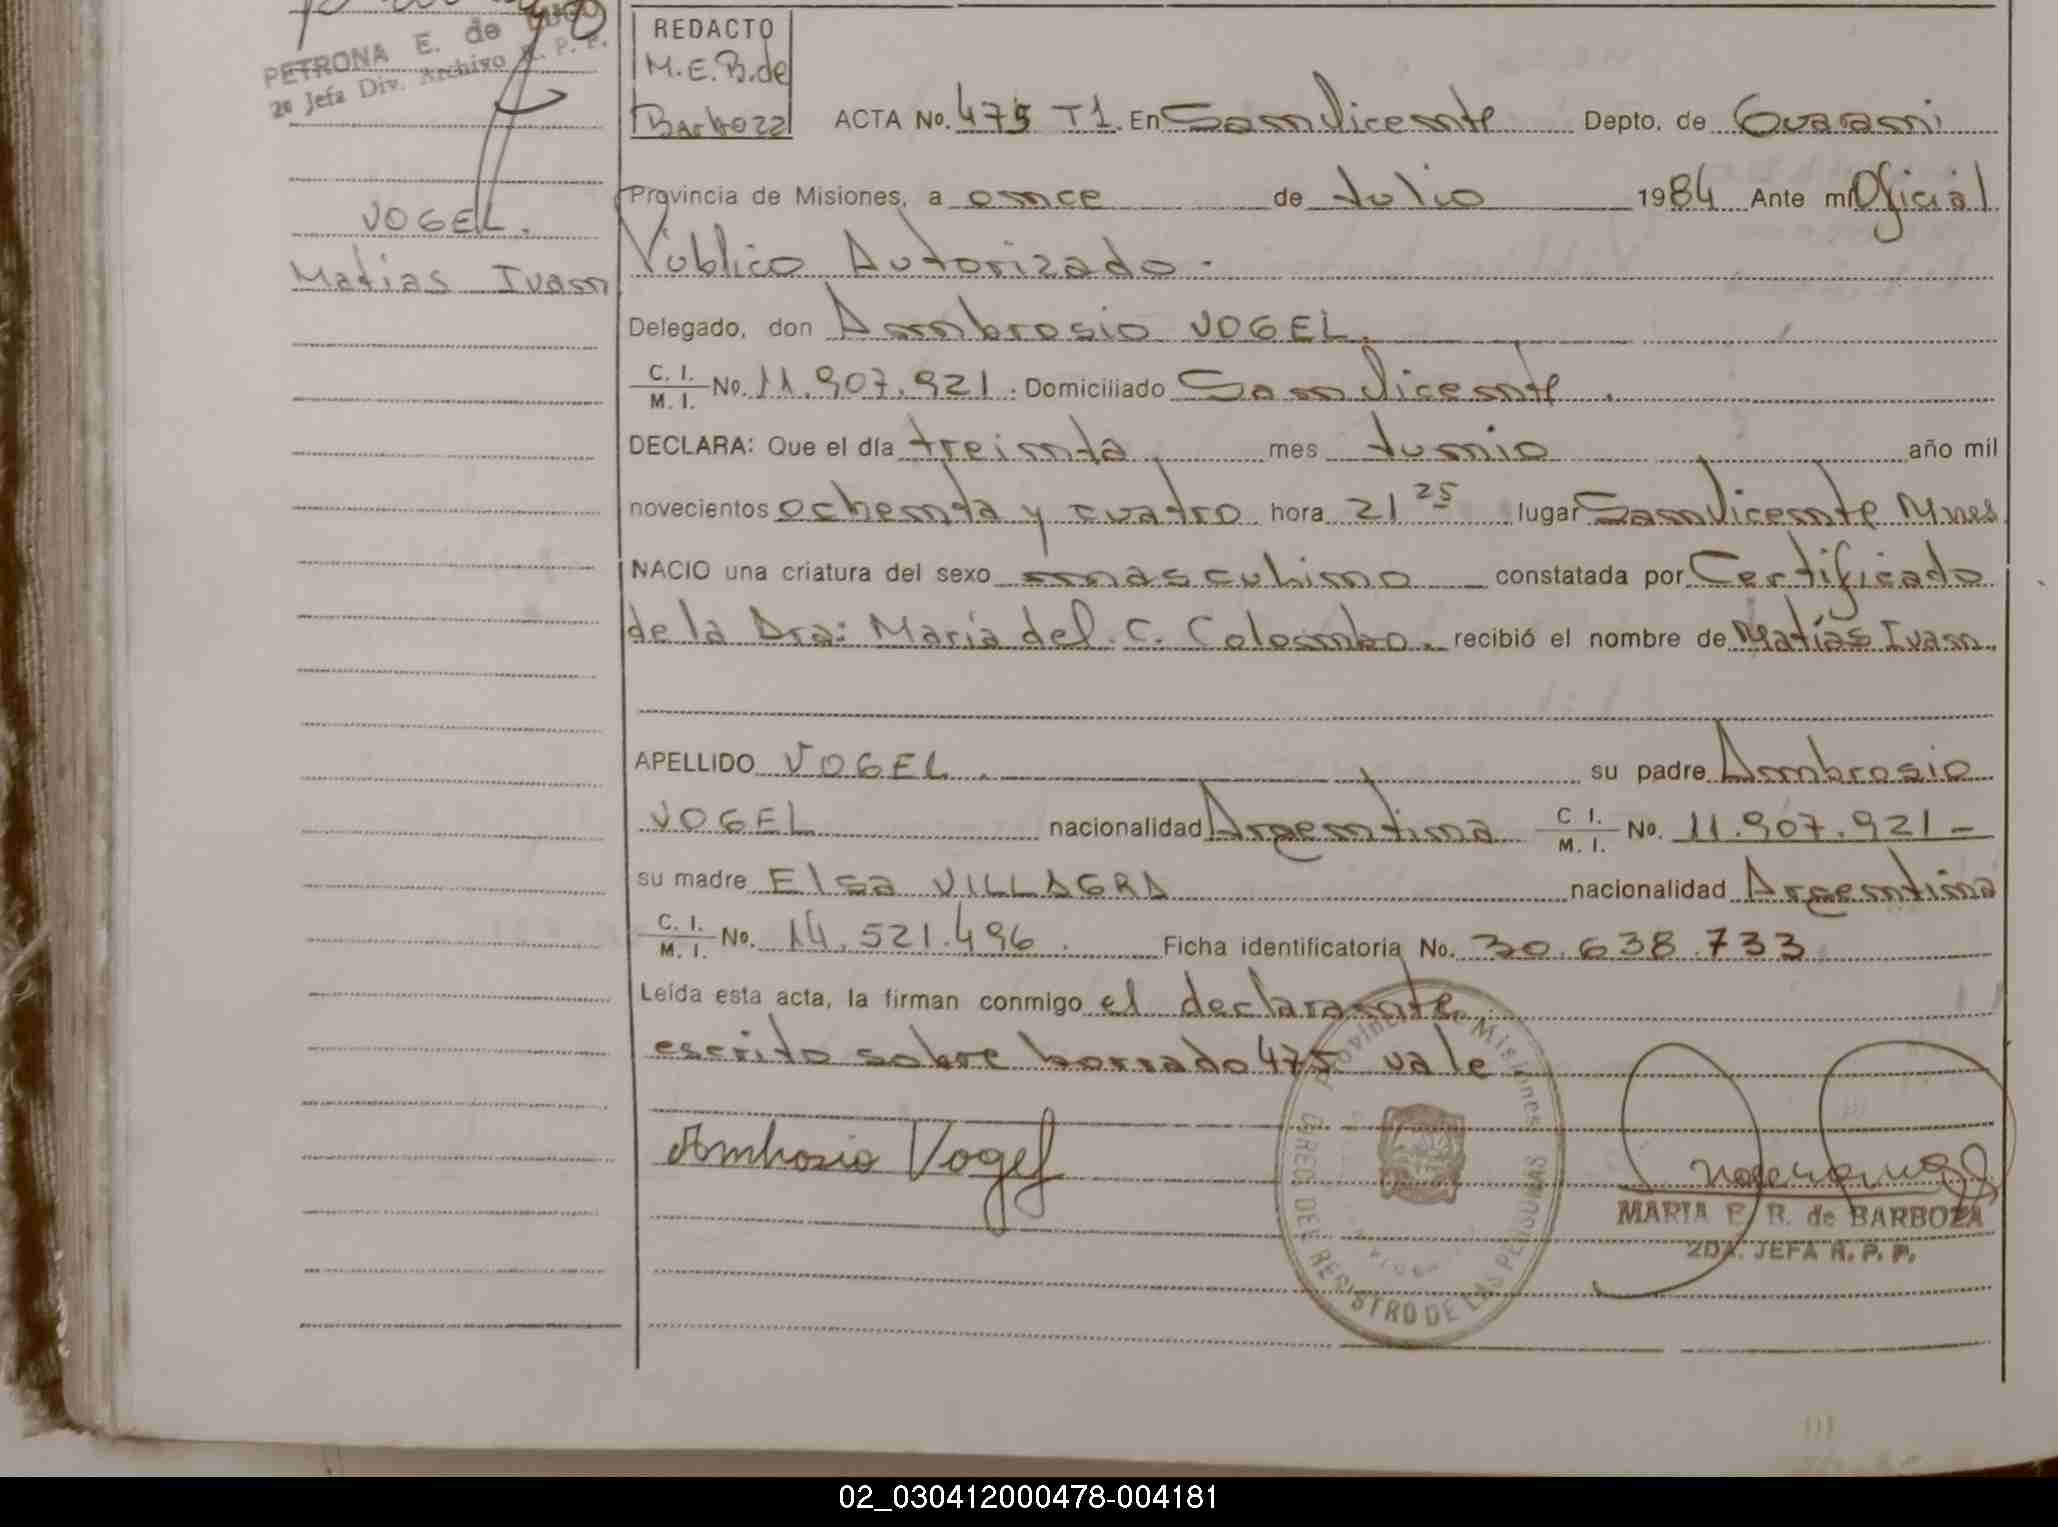 PETRONA E. de LUGO
2a Jefa Div. Archivo R. P. P.
REDACTO
M.E.B.de
Barboza
ACTA No. 475 T1. En San Vicente Depto. de Guarani
Provincia de Misiones, a once de Julio 1984 Ante mi Oficial
Público Autorizado.
VOGEL.
Matias Ivan
Delegado, don Ambrosio VOGEL.
C. I.
M. I. No. 11.907.921. Domiciliado San Vicente.
DECLARA: Que el día treinta mes Junio año mil
novecientos ochenta y cuatro hora 21 25 lugar San Vicente Mnes
NACIO una criatura del sexo masculino constatada por Certificado
de la Dra: Maria del C. Colombo. recibió el nombre de Matías Ivan.
APELLIDO VOGEL. su padre Ambrosio
VOGEL nacionalidad Argentina C I.
M. I. No. 11.907.921 -
su madre Elsa VILLAGRA nacionalidad Argentina
C. I.
M. I. No. 14.521.496. Ficha identificatoria No. 30.638.733
Leída esta acta, la firman conmigo el declarante.
escrito sobre borrado 475 vale
Ambrosio Vogel
Provincia de Misiones
DIREC. DEL REGISTRO DE LAS PERSONAS
MARIA E. B. de BARBOZA
2DA. JEFA R. P. P.
02_030412000478-004181